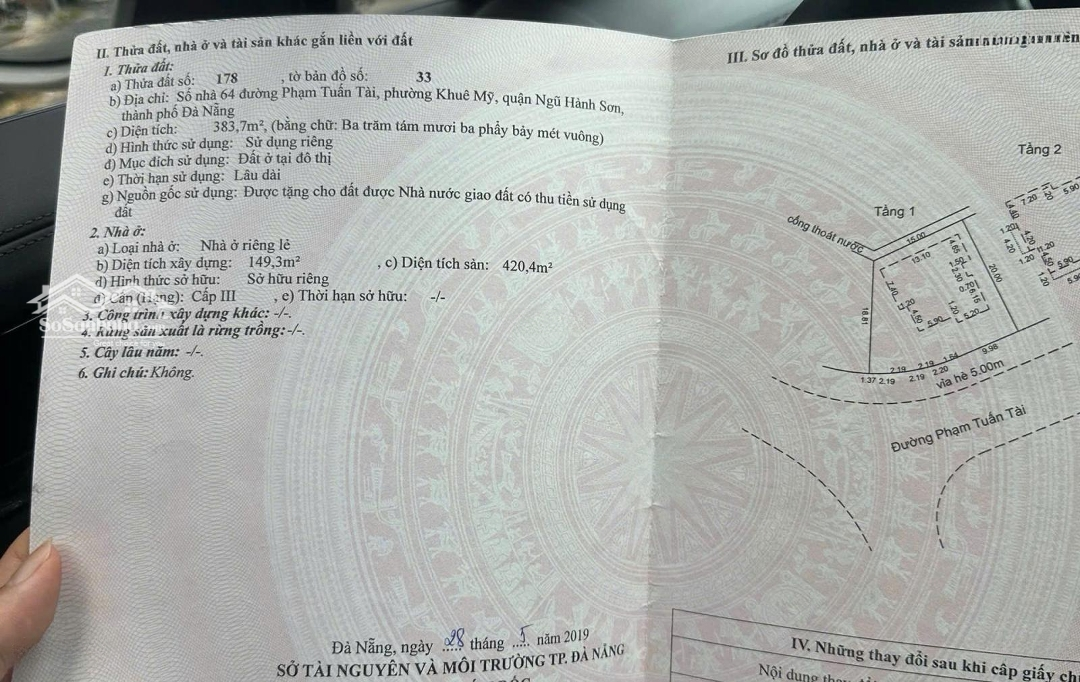 II. Thửa đất, nhà ở và tài sản khác gắn liền với đất
1. Thửa đất:
a) Thửa đất số: 178 , tờ bản đồ số: 33
b) Địa chỉ: Số nhà 64 đường Phạm Tuấn Tài, phường Khuê Mỹ, quận Ngũ Hành Sơn,
thành phố Đà Nẵng
c) Diện tích: 383,7m², (bằng chữ: Ba trăm tám mươi ba phẩy bảy mét vuông)
d) Hình thức sử dụng: Sử dụng riêng
đ) Mục đích sử dụng: Đất ở tại đô thị
e) Thời hạn sử dụng: Lâu dài
g) Nguồn gốc sử dụng: Được tặng cho đất được Nhà nước giao đất có thu tiền sử dụng
đất
2. Nhà ở:
a) Loại nhà ở: Nhà ở riêng lẻ
b) Diện tích xây dựng: 149,3m² , c) Diện tích sàn: 420,4m²
d) Hình thức sở hữu: Sở hữu riêng
đ) Cấp (Hạng): Cấp III , e) Thời hạn sở hữu: -/-
3. Công trình xây dựng khác: -/-.
4. Rừng sản xuất là rừng trồng: -/-.
5. Cây lâu năm: -/-.
6. Ghi chú: Không.
Đà Nẵng, ngày 28 tháng 5 năm 2019
SỞ TÀI NGUYÊN VÀ MÔI TRƯỜNG TP. ĐÀ NẴNG
III. Sơ đồ thửa đất, nhà ở và tài sản
Tầng 2
Tầng 1
cống thoát nước
15.00
13.10
4.65
20.00
7.40
1.50
2.30
0.70
6.15
11.20
4.50
5.90
1.20
5.20
18.81
9.98
1.64
2.19
2.19
2.20
1.37 2.19
2.19
vỉa hè 5.00m
Đường Phạm Tuấn Tài
7.20
5.90
4.40
1.20
4.20
4.20
11.20
1.20
4.50
5.90
1.20
IV. Những thay đổi sau khi cấp giấy
Nội dung